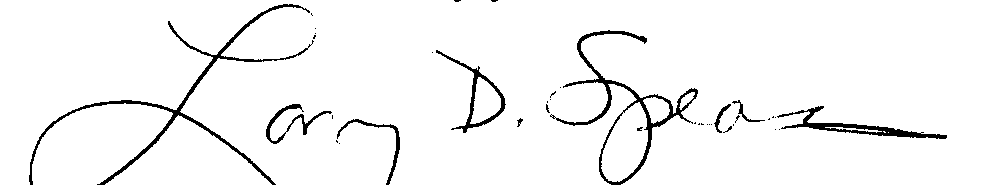 Larry D. Spears